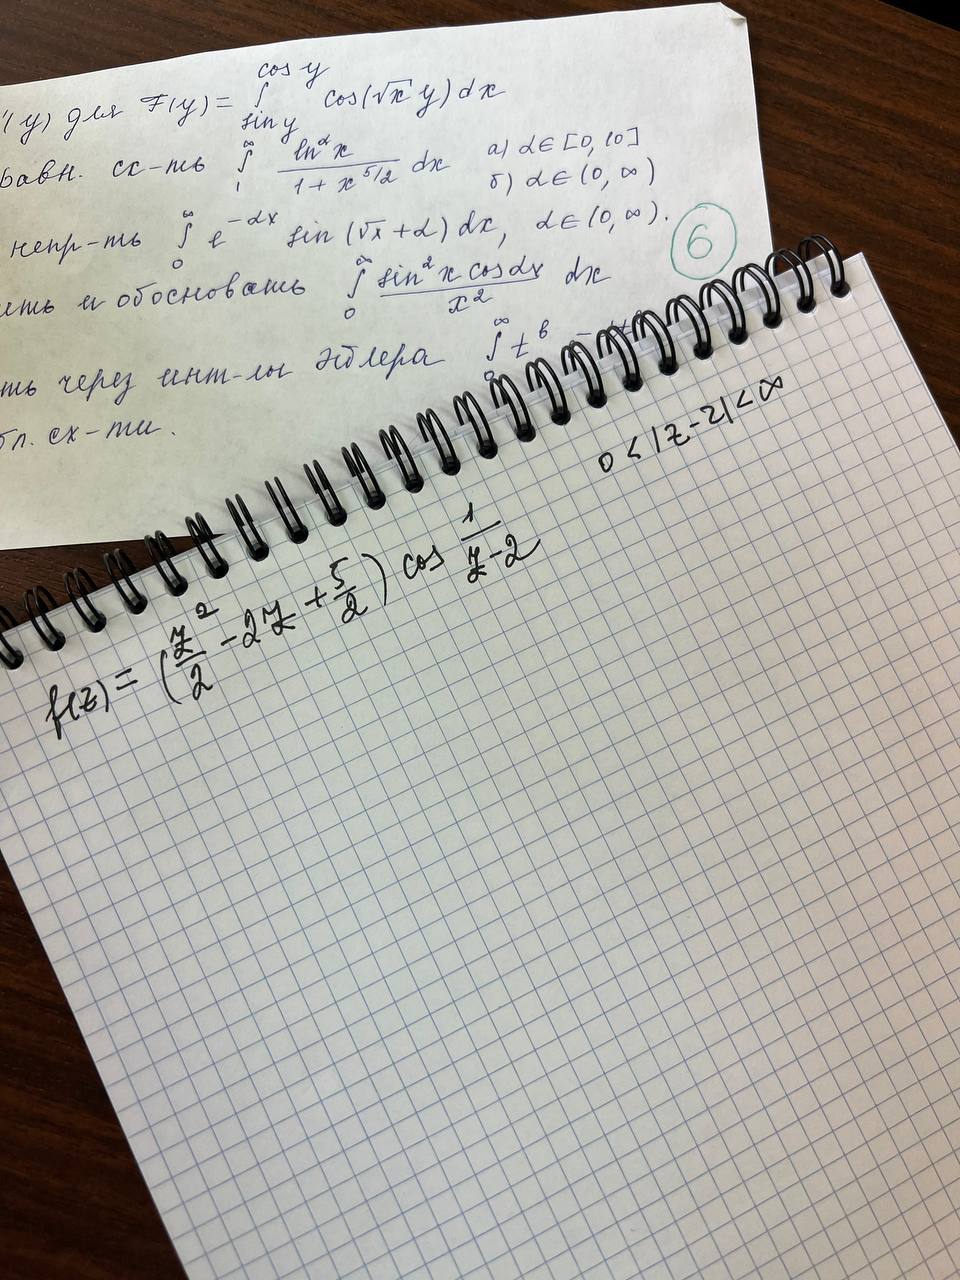 '(y) для F(y) = ∫_{sin y}^{cos y} cos(√x y) dx
равн. сх-ть ∫_1^∞ ln^α x / (1 + x^{5/2}) dx а) α ∈ [0, 10]
б) α ∈ (0, ∞)
непр-ть ∫_0^∞ e^{-αx} sin(√x + α) dx, α ∈ (0, ∞).
6
ить и обосновать ∫_0^∞ sin² x cos αx / x² dx
ть через инт-лы Эйлера ∫_0^∞ t^b
бл. сх-ти.
0 < |z - 2| < ∞
f(z) = (z²/2 - 2z + 5/2) cos 1/(z - 2)